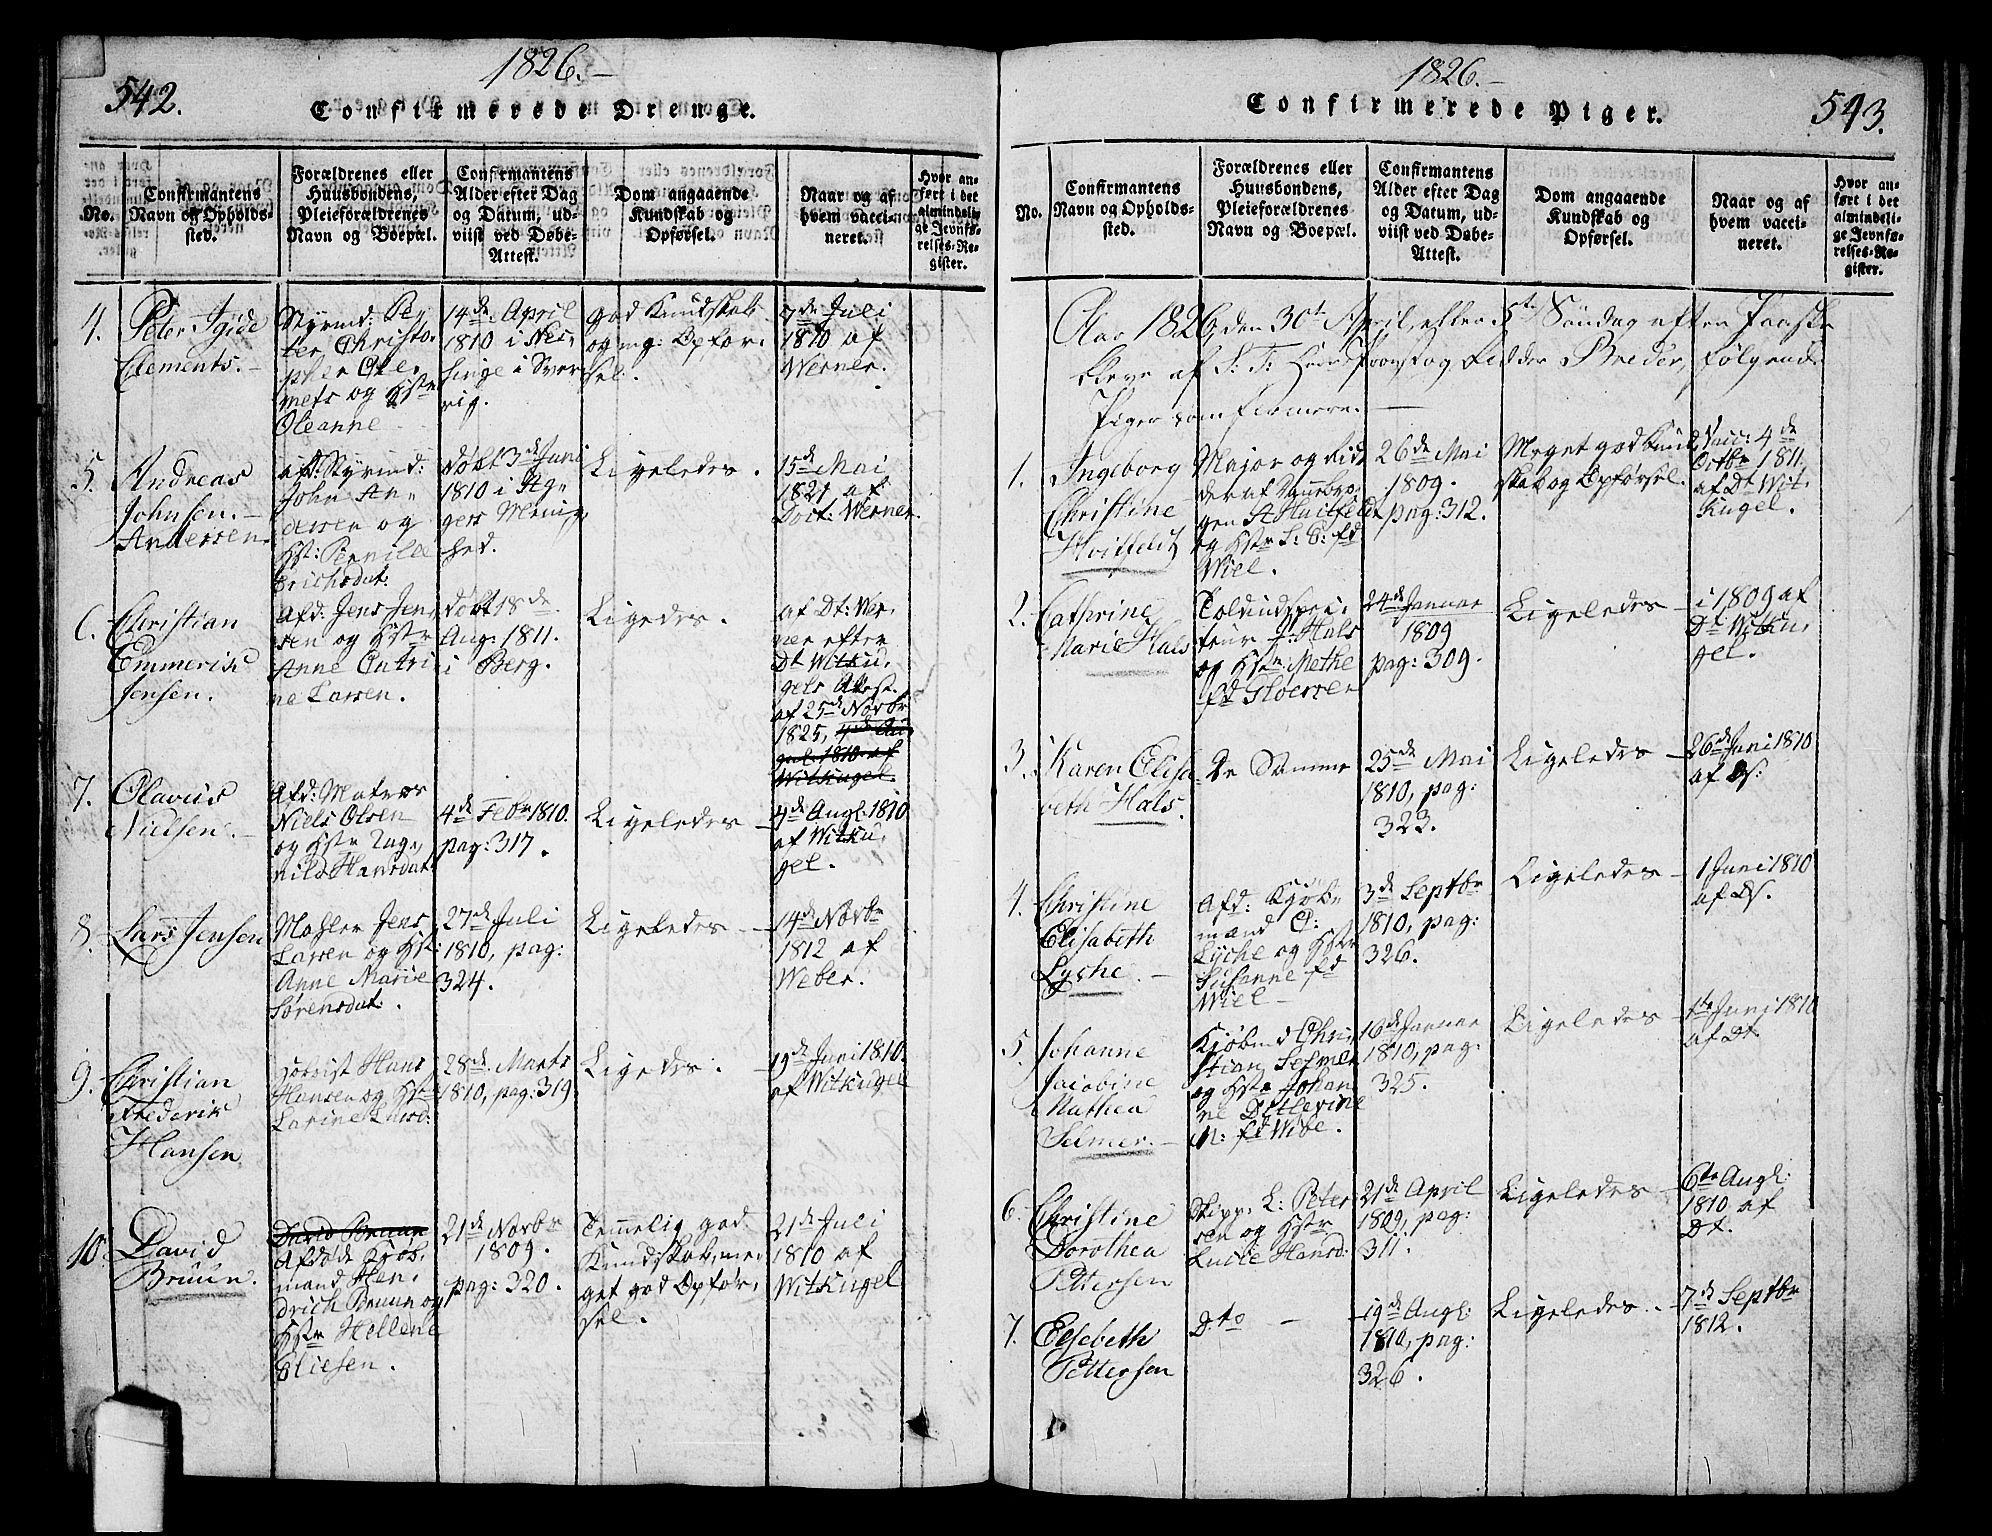 542.
1826.-
Confirmerede Drenge.
No.
Confirmantens
Navn og Opholds-
sted.
Forældrenes eller
Huusbondens,
Pleieforældrenes
Navn og Boepæl.
Confirmantens
Alder efter Dag
og Datum, ud-
viist ved Døbe-
Attest.
Dom angaaende
Kundskab og
Opførsel.
Naar og af
hvem vacci-
neret.
Hvor an-
ført i det
almindeli-
ge Jevnfø-
relses-Re-
gister.
4.
Peter
Clements.-
Styrmd: Pe-
ter Christo-
pher Cle-
mets og Hstr
Oleanne
14de April
1810 i
i Sver-
rig.
god Kundskab
og mg: Opfør-
sel.
7de Juli
1810 af
Werner.
5.
Andreas
Johnsen.-
Anderssen
afd: Styrmd:
John An-
derssen og
Hst: Pernille
Erichsdat:
døbt 3de Juni
1810 i Ag-
gers Menig-
hed.
Ligeledes.
15de Mai
1821 af
Doct: Werner.
6.
Christian
Emmerik
Jensen.
Afd: Jens Jen-
sen og Hstr
Anne Catri-
ne Larsen.
døbt 18de
Aug: 1811.
i Berg.
Ligeledes.
af Dt: Wer-
ner efter
Dt Witku-
gels Attest
af 25de Novbr
1825,
7.
Olavus
Nielsen.-
Afd: Matros
Niels Olsen
og Hstr Rag-
nild Hansdat:
4de Febr 1810.
pag: 317.
Ligeledes
4de Augl: 1810
af Witku-
gel.
8.
Lars Jensen
Mahler Jens
Larsen og Hst:
Anne Marie
Sørensdat:.
27de Juli
1810, pag:
324.
Ligeledes
14de Novbr
1812 af
Weber.
9.
Christian
Frederik
Hansen
Hans
Hansen og Hstr
Larine Larsd:
28de Marts
1810, pag: 319
Ligeledes.
19de Juni 1810.
af Witkugel
10.
David
Bruun.
David Bruun
Afdøde Kjøb-
mand Hen-
drich Bruun og
Hstr Hellene
Eliesen.
21de Novbr
1809.
pag: 320.
Temmelig god
Kundskab, me-
get god Opfør-
sel.
21de Juli
1810 af
Witkugel
1826.-
543.
Confirmerede Piger.
No.
Confirmantens
Navn og Opholds-
sted.
Forældrenes eller
Huusbondens,
Pleieforældrenes
Navn og Boepæl.
Confirmantens
Alder efter Dag
og Datum, ud-
viist ved Døbe-
Attest.
Dom angaaende
Kundskab og
Opførsel.
Naar og af
hvem vacci-
neret.
Hvor an-
ført i det
almindeli-
ge Jevnfø-
relses-Re-
gister.
Aar 1826, den 30t April, efter 5te Søndag efter Paaske
bleve af S: T: Herr Provst og Ridder Breder, følgende
Piger confirmere.
1.
Ingeborg
Christine
Hvitfeldt
Major og Rid-
der af Dannebro-
gen A Huitfeldt
og Hstr S: C: fd
Wiel.
26de Mai
1809.
pag: 312.
Meget god Kund-
skab og Opførsel.
Vaic: 4de
Octbr 1811.
af Dt Wit-
kugel.
2.
Cathrine
Marie Hals
Toldinspec-
teur J: Hals
og Hstr Methe
fd Gloersen
24de Januar
1809
pag: 309.
Ligeledes
i 1809 af
Dt Witku-
gel.
3.
Karen Elisa-
beth Hals.
De Samme
25de Mai
1810, pag:
323.
Ligeledes
26de Juni 1810
af Ds:
4.
Christine
Elisabeth
Lyche.-
Afd: Kjøb-
mand C:
Lyche og Hstr
Susanne fd
Wiel
3de Septbr
1810, pag:
326.
Ligeledes
1 Juni 1810
af Ds.
5.
Johanne
Jacobine
Mathea
Selmer.-
Kjøbmd Chri-
stian Selmer
og Hstr Johan-
ne Ditlevine
M: fd Wibe.
16de Januar
1810, pag:
325.
Ligeledes
1te Juni 1810
af Dt
6.
Christine
Dorothea
Pettersen
Skipp: L: Peter-
sen og Hstr
Lucie Hansd:
21de April
1809, pag:
311.
Ligeledes
6te Augl:
1810 af
Dt.
7.
Elsebeth
Pettersen
Dto
19de Augl:
1810, pag:
326.
Ligeledes
7de Septbr
1812.